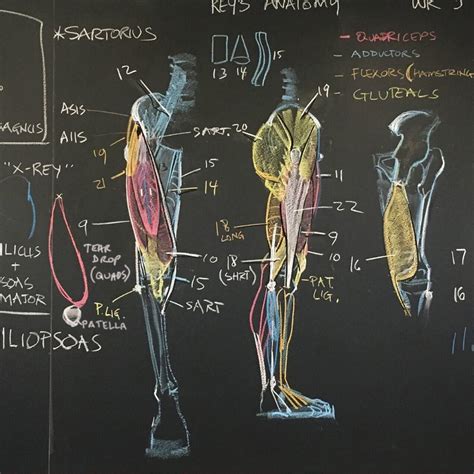 ANATOMY
*SARTORIUS
QUADRICEPS
ADDUCTORS
FLEXORS (HAMSTRING
GLUTEALS
13 14 15
12
19
ASIS
AIIS
SART. 20
19
21
15
14
11
"X-REY"
9
22
18 LONG
9
TEAR DROP (QUADS)
10
18 (SHRT)
10
16
16
17
15
PAT. LIG.
P. LIG.
SART
PATELLA
+
SOAS
MATOR
ILIOPSOAS